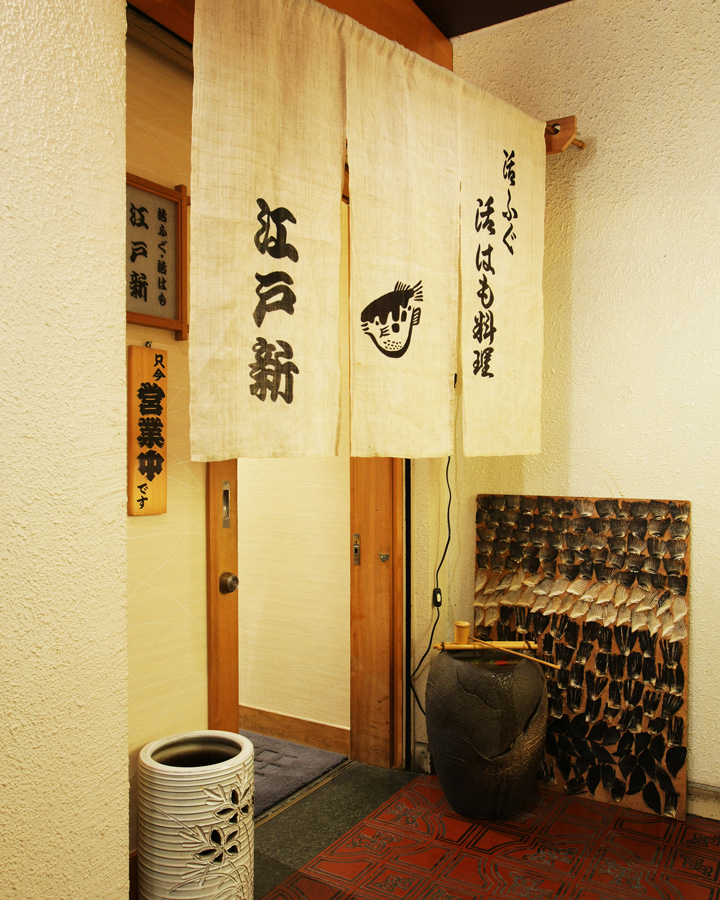 活ふぐ
活はも料理
江戸新
活ふぐ・活はも
江戸新
只今
営業中
です